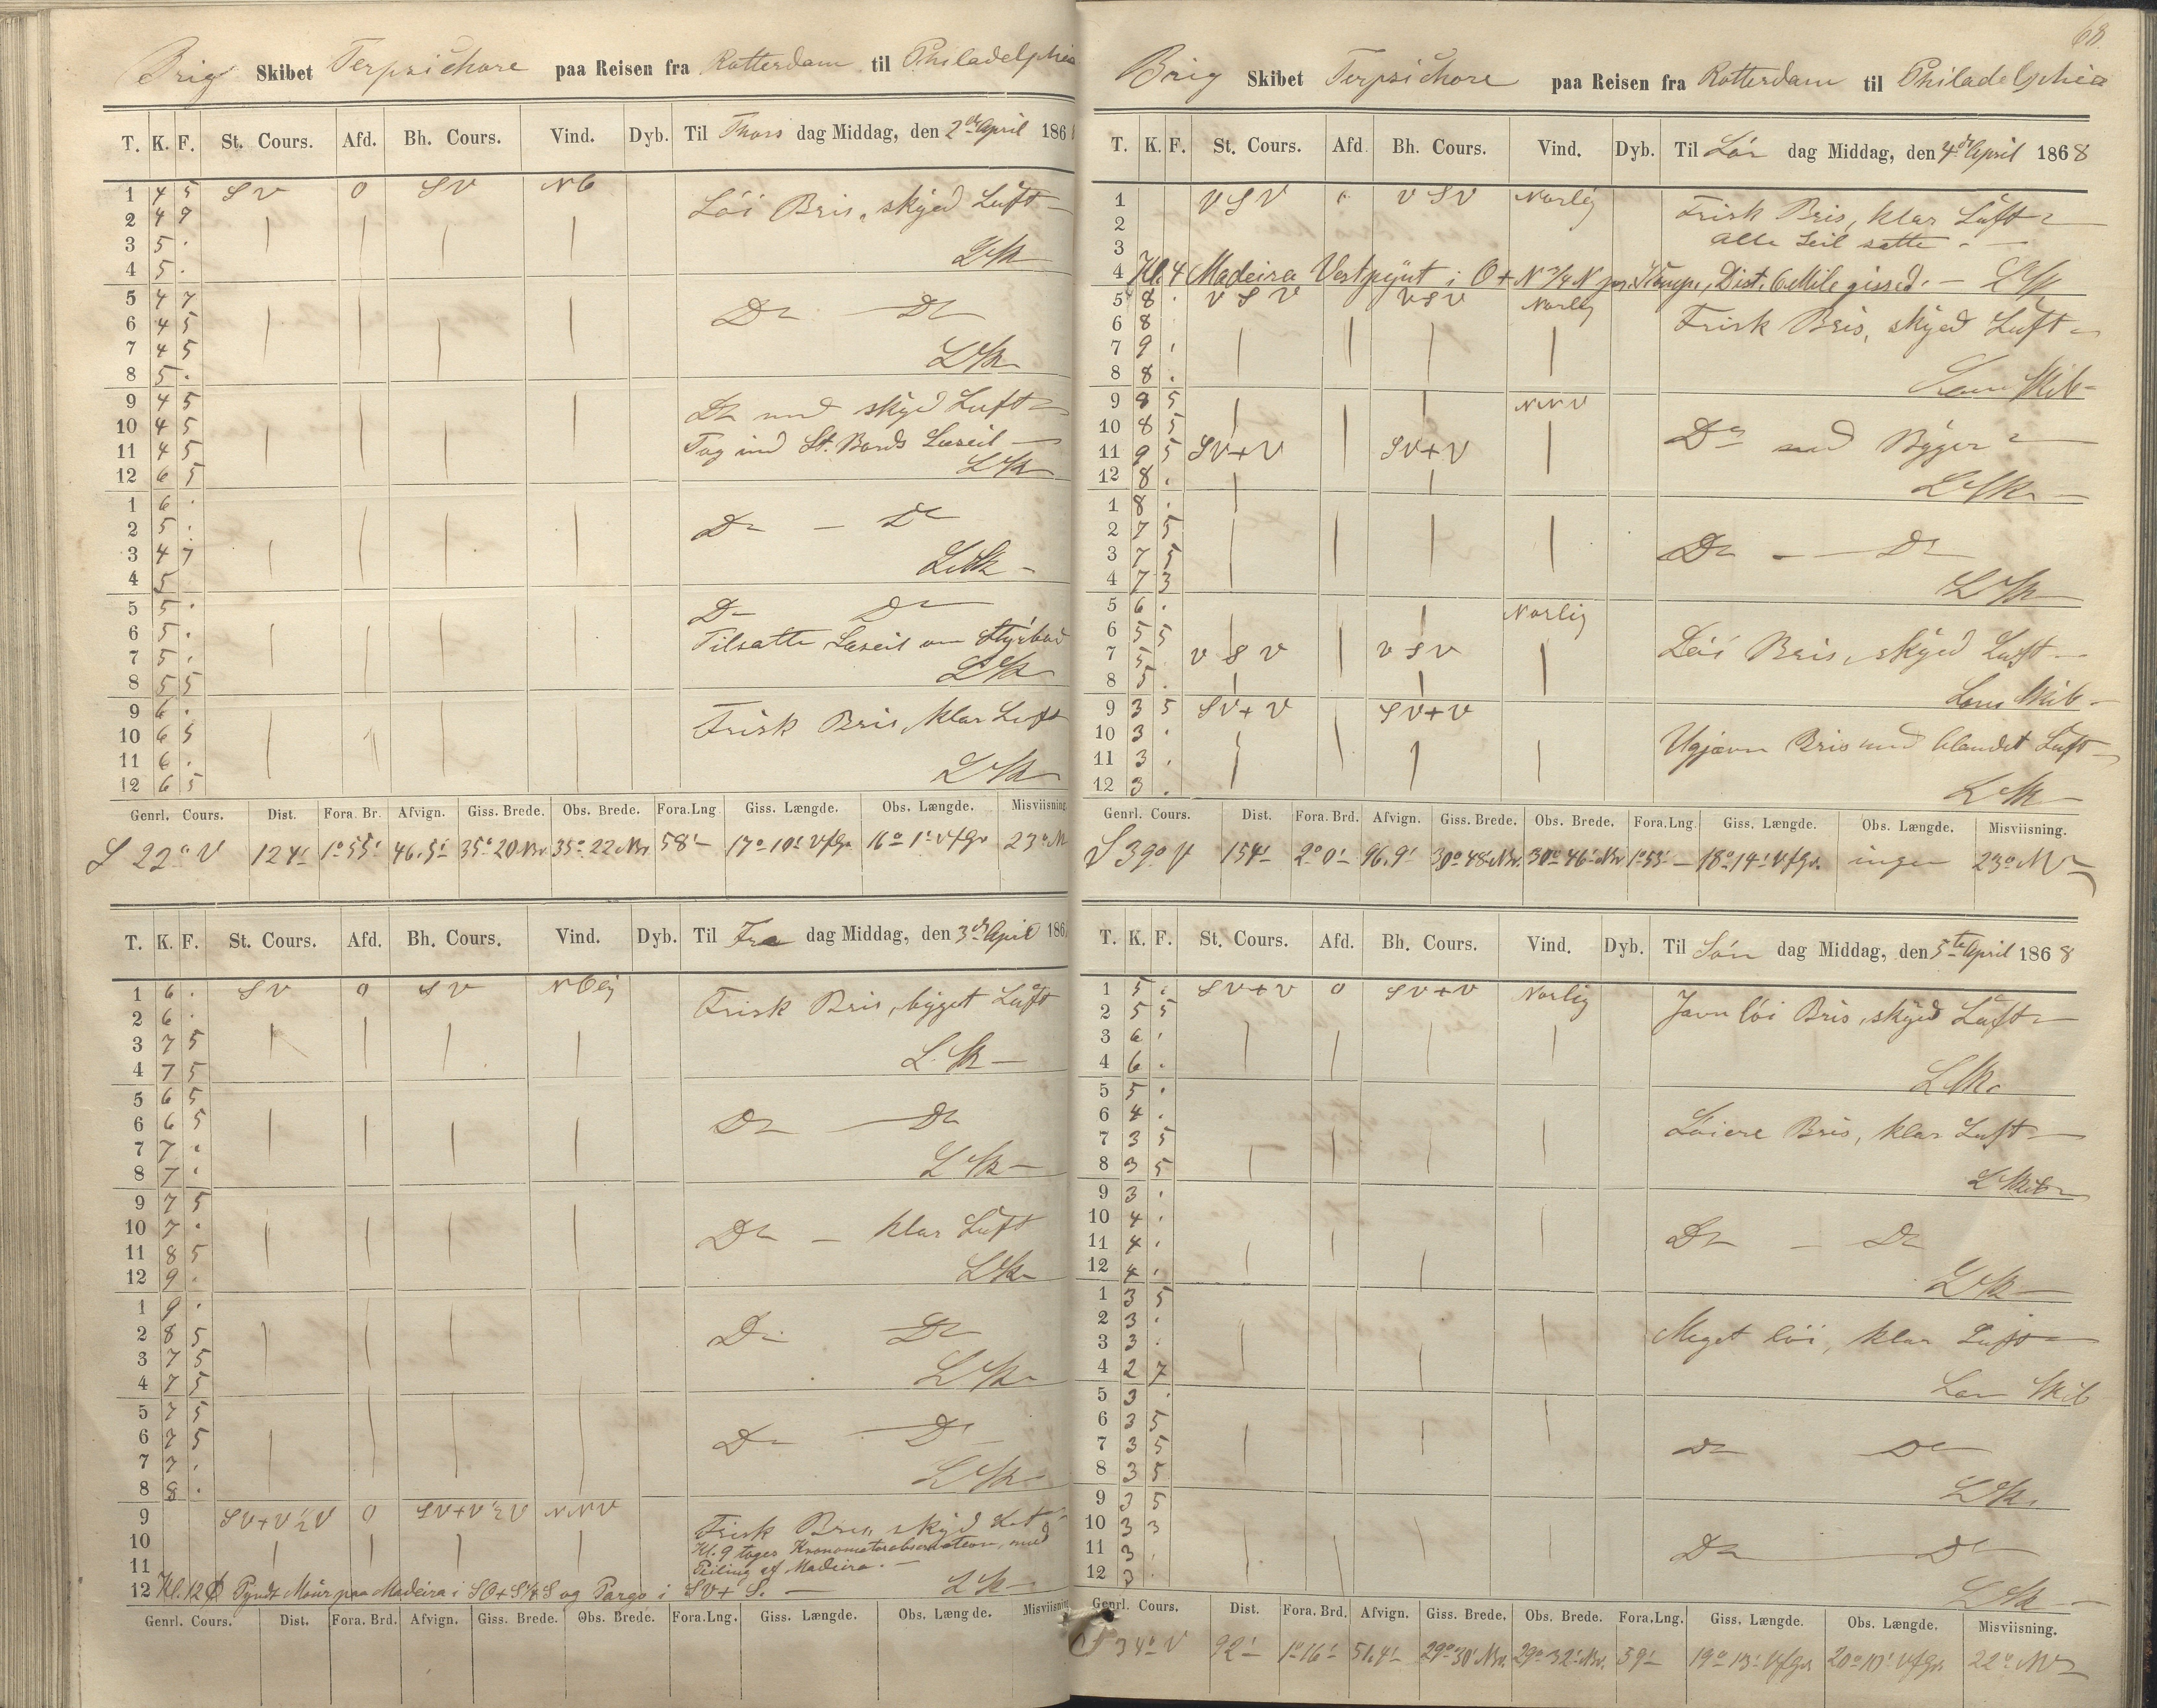 Brig Skibet Terpsichore paa Reisen fra Rotterdam til Philadelphia
T. K. F. St. Cours. Afd. Bh. Cours. Vind. Dyb. Til Thors dag Middag, den 2de April 186
1 4 5 SV 0 SV NO Löi Bris, skyed Luft
2 4 7
3 5 .
4 5 .
5 4 7 Do Do
6 4 5
7 4 5
8 5 .
9 4 5 Do med skyed Luft
10 4 5
11 4 5 Tog ind St. Bords Læseil
12 6 5
1 6 .
2 5 . Do Do
3 4 7
4 5
5 5 . Do Do
6 5 . Tilsatte Læseil om Styrbord
7 5 .
8 5 5
9 6 . Frisk Bris, klar Luft
10 6 5
11 6 .
12 6 5
Genrl. Cours. Dist. Fora. Br. Afvign. Giss. Brede. Obs. Brede. Fora.Lng. Giss. Længde. Obs. Længde. Misviisning
S 22° V 124' 1° 55' 46.5' 35° 20' Nr 35° 22' Nr 58' 17° 10' Vfgr 16° 1' Vfgr 23° NV
T. K. F. St. Cours. Afd. Bh. Cours. Vind. Dyb. Til Fre dag Middag, den 3de April 186
1 6 . SV 0 SV NOlig Frisk Bris, bÿget Luft
2 6 .
3 7 5
4 7 5
5 6 5
6 6 5 Do Do
7 7 .
8 7 .
9 7 5
10 7 . Do klar Luft
11 8 5
12 9 .
1 9 .
2 8 5 Do Do
3 7 5
4 7 5
5 7 5
6 7 5 Do Do
7 7 .
8 8 .
9 SV+V ½ V 0 SV+V ½ V NNV Frisk Bris, skyed Luft
10 Kl. 9 toges Kronometerobservation, med
11 Peiling af Madeira.
12 Kl. 12 Pynt Maur paa Madeira i SO+S ¼ S og Pargo i SV+S.
Genrl. Cours. Dist. Fora. Brd. Afvign. Giss. Brede. Obs. Brede. Fora.Lng. Giss. Længde. Obs. Længde. Misviisning
68.
Brig Skibet Terpsichore paa Reisen fra Rotterdam til Philadelphia
T. K. F. St. Cours. Afd. Bh. Cours. Vind. Dyb. Til Lör dag Middag, den 4de April 1868
1 VSV VSV Norlig Frisk Bris, klar Luft
2 alle Seil satte.
3
4 Kl. 4 Madeira Vestpynt i O+N ¾ N pr. Komp., Dist. 6 Mile gissed.
5 8 . VSV VSV Norlig Frisk Bris, skyed Luft
6 8
7 9 .
8 8 . Lens Skib
9 8 5 NNV
10 8 5 Do med Bÿger
11 9 5 SV+V SV+V
12 8 .
1 8 .
2 7 5
3 7 5 Do Do
4 7 3
5 6 . Norlig
6 5 5
7 5 . VSV VSV Löi Bris, skyed Luft
8 5 . Lens Skib
9 3 5 SV+V SV+V
10 3 . Ujævn Bris med blandet Luft
11 3 .
12 3 .
Genrl. Cours. Dist. Fora. Brd. Afvign. Giss. Brede. Obs. Brede. Fora.Lng. Giss. Længde. Obs. Længde. Misviisning.
S 39° V 154' 2° 0' 96.9' 30° 48' Nr. 30° 46' Nr 1° 53' 18° 14' Vfgr. ingen 23° NV
T. K. F. St. Cours. Afd. Bh. Cours. Vind. Dyb. Til Sön dag Middag, den 5te April 1868
1 5 . SV+V 0 SV+V Norlig Javn löi Bris, skyed Luft
2 5 5
3 6 .
4 6 .
5 5 .
6 4 . Löiere Bris, klar Luft
7 3 5
8 3 5 L Skib
9 3 .
10 4 .
11 4 . Do Do
12 4 .
1 3 5
2 3 . Meget löi, klar Luft
3 3 .
4 2 7 Lens Skib
5 3 .
6 3 5
7 3 5 Do Do
8 3 5
9 3 5
10 3 3
11 3 . Do Do
12 3 .
Genrl. Cours. Dist. Fora. Brd. Afvign. Giss. Brede. Obs. Brede. Fora.Lng. Giss. Længde. Obs. Længde. Misviisning.
S 34° V 92' 1° 16' 51.4' 29° 30' Nr. 29° 32' Nr. 59' 19° 13' Vfgr 20° 10' Vfgr 22° NV